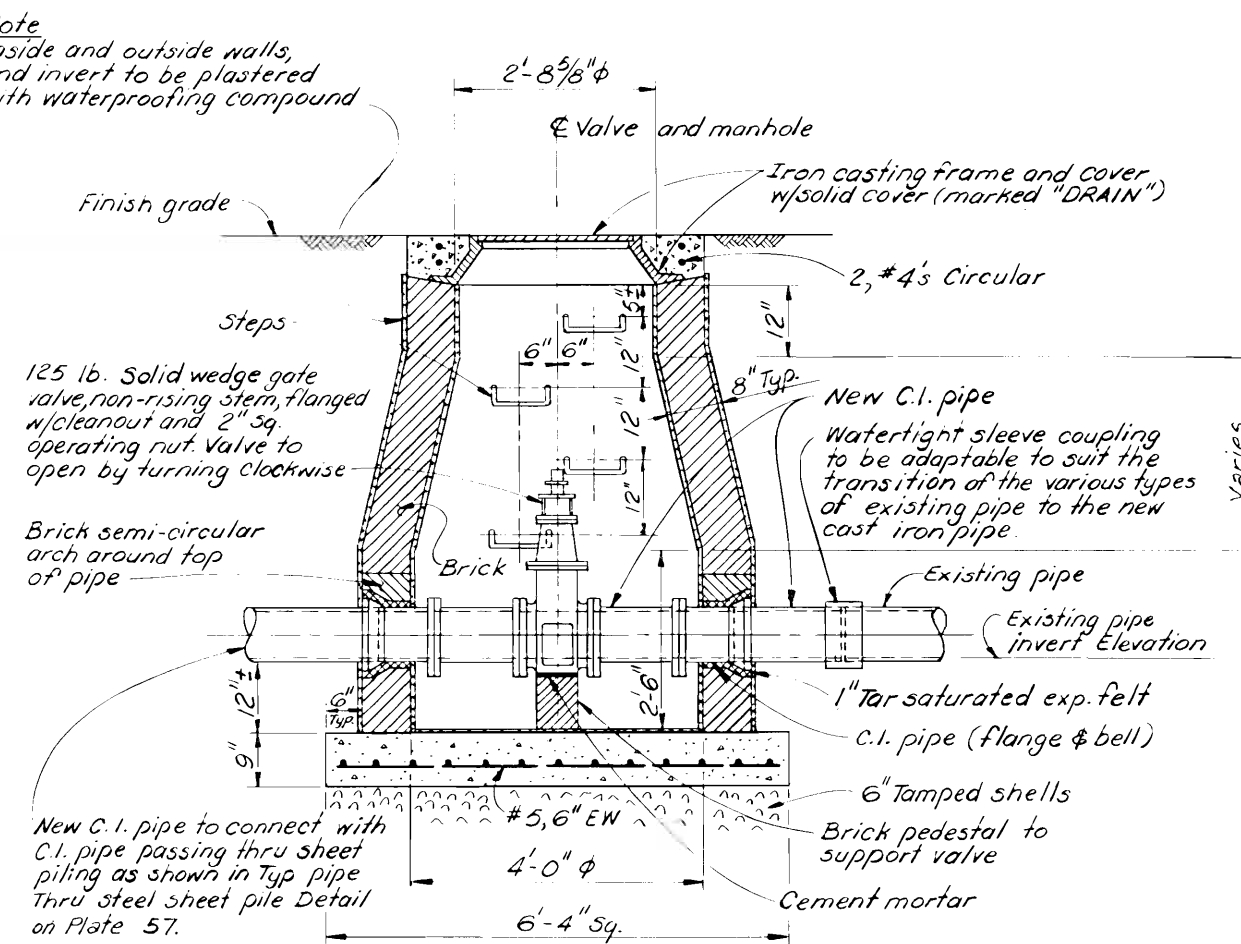 ote
side and outside walls,
nd invert to be plastered
ith waterproofing compound
2'-8 5/8" ϕ
℄ Valve and manhole
Iron casting frame and cover
w/solid cover (marked "DRAIN")
Finish grade
2, #4's Circular
5"±
12"
Steps
6" 6"
12"
8" Typ.
125 lb. Solid wedge gate
valve, non-rising stem, flanged
w/cleanout and 2" sq.
operating nut. Valve to
open by turning clockwise
12"
12"
New C.I. pipe
Watertight sleeve coupling
to be adaptable to suit the
transition of the various types
of existing pipe to the new
cast iron pipe.
Varies
Brick semi-circular
arch around top
of pipe
Brick
Existing pipe
Existing pipe
invert Elevation
12"±
6"
Typ.
2'-6"
1" Tar saturated exp. felt
C.I. pipe (flange & bell)
9"
6" Tamped shells
#5, 6" EW
Brick pedestal to
support valve
New C.I. pipe to connect with
C.I. pipe passing thru sheet
piling as shown in Typ pipe
Thru steel sheet pile Detail
on Plate 57.
4'-0" ϕ
Cement mortar
6'-4" Sq.